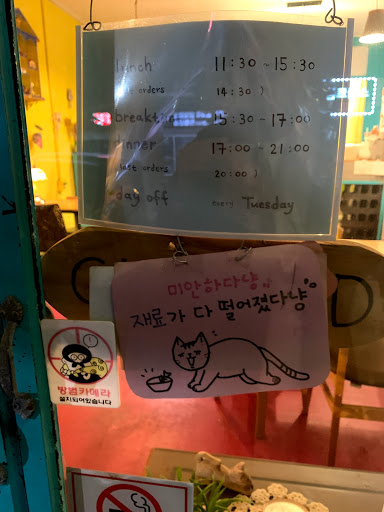 lunch 11:30 ~ 15:30
orders 14:30 )
breaktime 15:30 ~ 17:00
dinner 17:00 ~ 21:00
last orders 20:00 )
day off every Tuesday
C D
미안하다냥
재료가 다 떨어졌다냥
방범카메라
설치되어있습니다